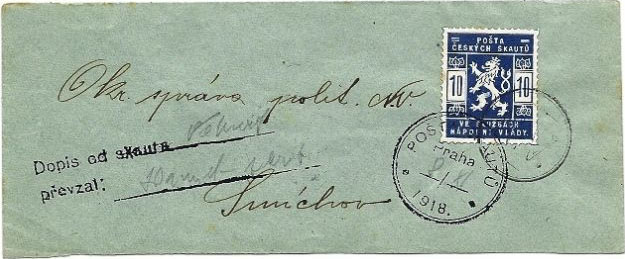 POŠTA
ČESKÝCH SKAUTŮ
10 10
VE SLUŽBÁCH
NÁRODNÍ VLÁDY.
Okr. správa polit. NV.
Dopis od skauta
převzal:
Smíchov
POŠTA SKAUTŮ
Praha
1918.